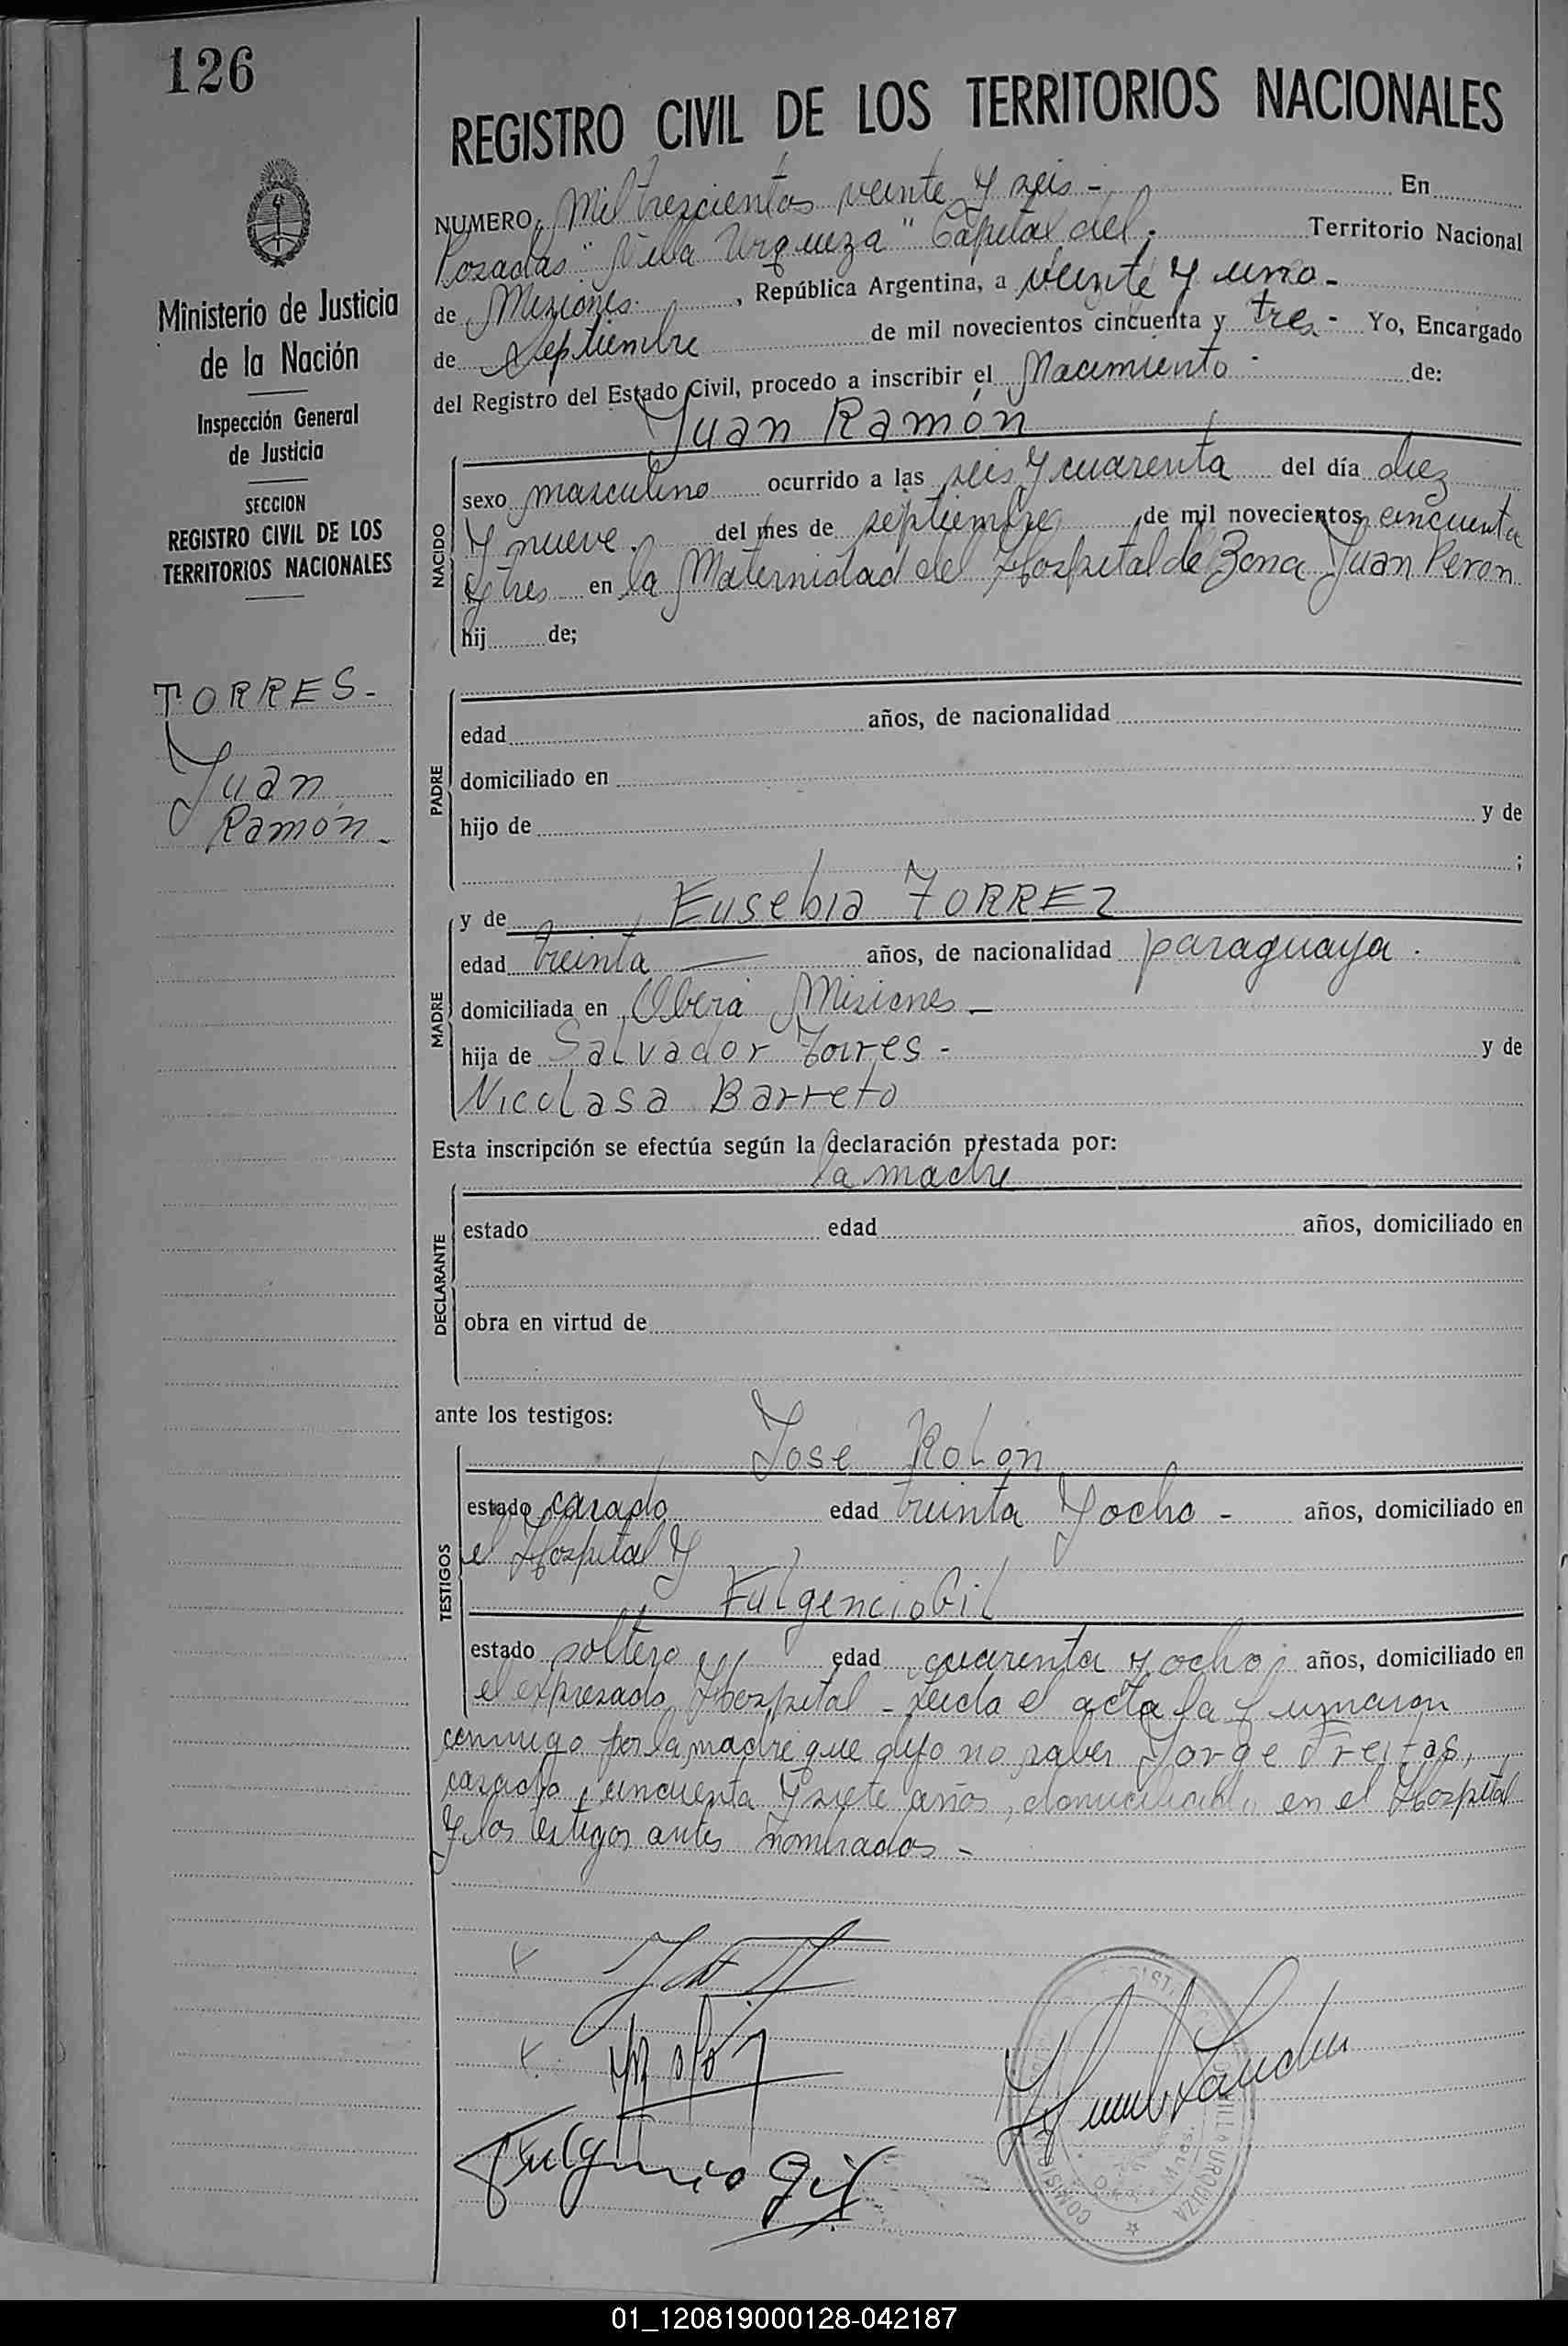 126
REGISTRO CIVIL DE LOS TERRITORIOS NACIONALES
Ministerio de Justicia
de la Nación
Inspección General
de Justicia
SECCION
REGISTRO CIVIL DE LOS
TERRITORIOS NACIONALES
TORRES-
Juan
Ramón-
NUMERO Mil trescientos veinte y seis - En
Posadas "Villa Urquiza" Capital del Territorio Nacional
de Misiones, República Argentina, a veinte y uno-
de septiembre de mil novecientos cincuenta y tres- Yo, Encargado
del Registro del Estado Civil, procedo a inscribir el Nacimiento de:
Juan Ramón
NACIDO
sexo masculino ocurrido a las seis y cuarenta del día diez
y nueve del mes de septiembre de mil novecientos cincuenta
y tres en la Maternidad del Hospital de Zona Juan Peron
hij de;
PADRE
edad años, de nacionalidad
domiciliado en
hijo de y de
;
MADRE
y de Eusebia TORREZ
edad treinta — años, de nacionalidad paraguaya.
domiciliada en Oberá Misiones-
hija de Salvador Torres- y de
Nicolasa Barreto
Esta inscripción se efectúa según la declaración prestada por:
la madre
DECLARANTE
estado edad años, domiciliado en
obra en virtud de
ante los testigos:
José Rolón
TESTIGOS
estado casado edad treinta y ocho- años, domiciliado en
el Hospital y
Fulgencio Gil
estado soltero edad cuarenta y ocho años, domiciliado en
el expresado Hospital - Leída el acta la firmaron
conmigo por la madre que dijo no saber Jorge Freitas,
casado, cincuenta y siete años, domiciliado en el Hospital
y los testigos antes nombrados-
Fulgencio Gil
VILLA URQUIZA
01_120819000128-042187